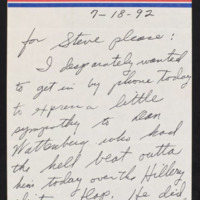 7-18-92
for Steve please:
I desparately wanted
to get in by phone today
to express a little
sympathy to Dan
Wattenberg who had
the hell beat outta
him today over the Hillery
flap. He did